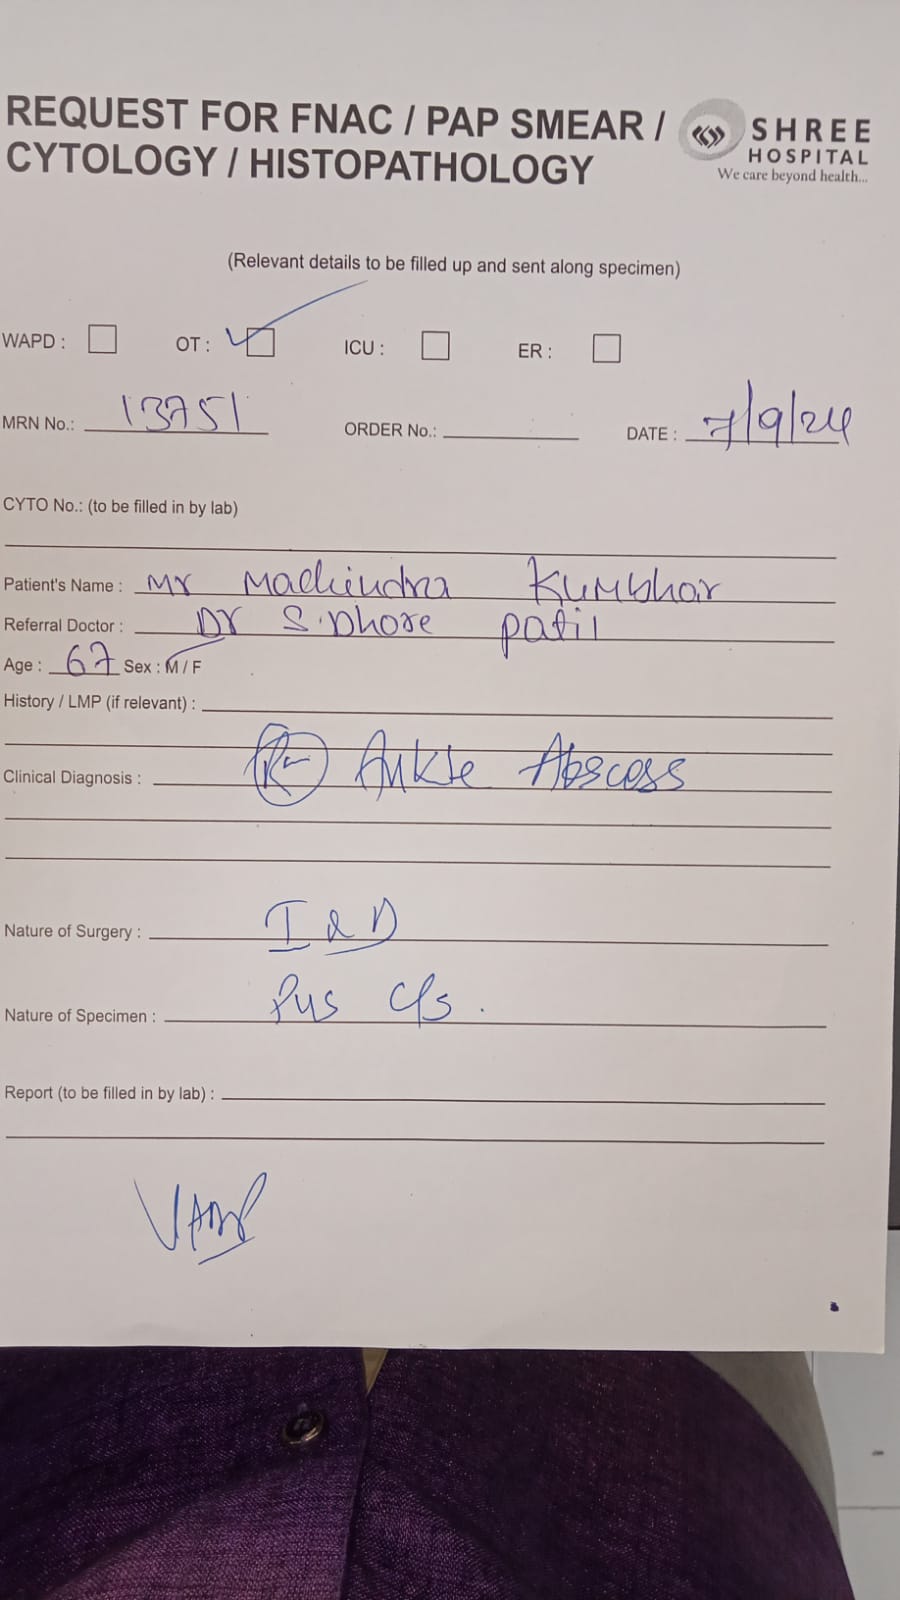 REQUEST FOR FNAC / PAP SMEAR /
CYTOLOGY / HISTOPATHOLOGY
SHREE
HOSPITAL
We care beyond health...
(Relevant details to be filled up and sent along specimen)
WAPD : OT : ICU : ER :
MRN No.: 13751 ORDER No.: DATE : 7/9/24
CYTO No.: (to be filled in by lab)
Patient's Name : Mr Machindra Kumbhar
Referral Doctor : Dr S. Dhore patil
Age : 67 Sex : M / F
History / LMP (if relevant) :
Clinical Diagnosis : Ankle Abscess
Nature of Surgery : I & D
Nature of Specimen : Pus C/s.
Report (to be filled in by lab) :